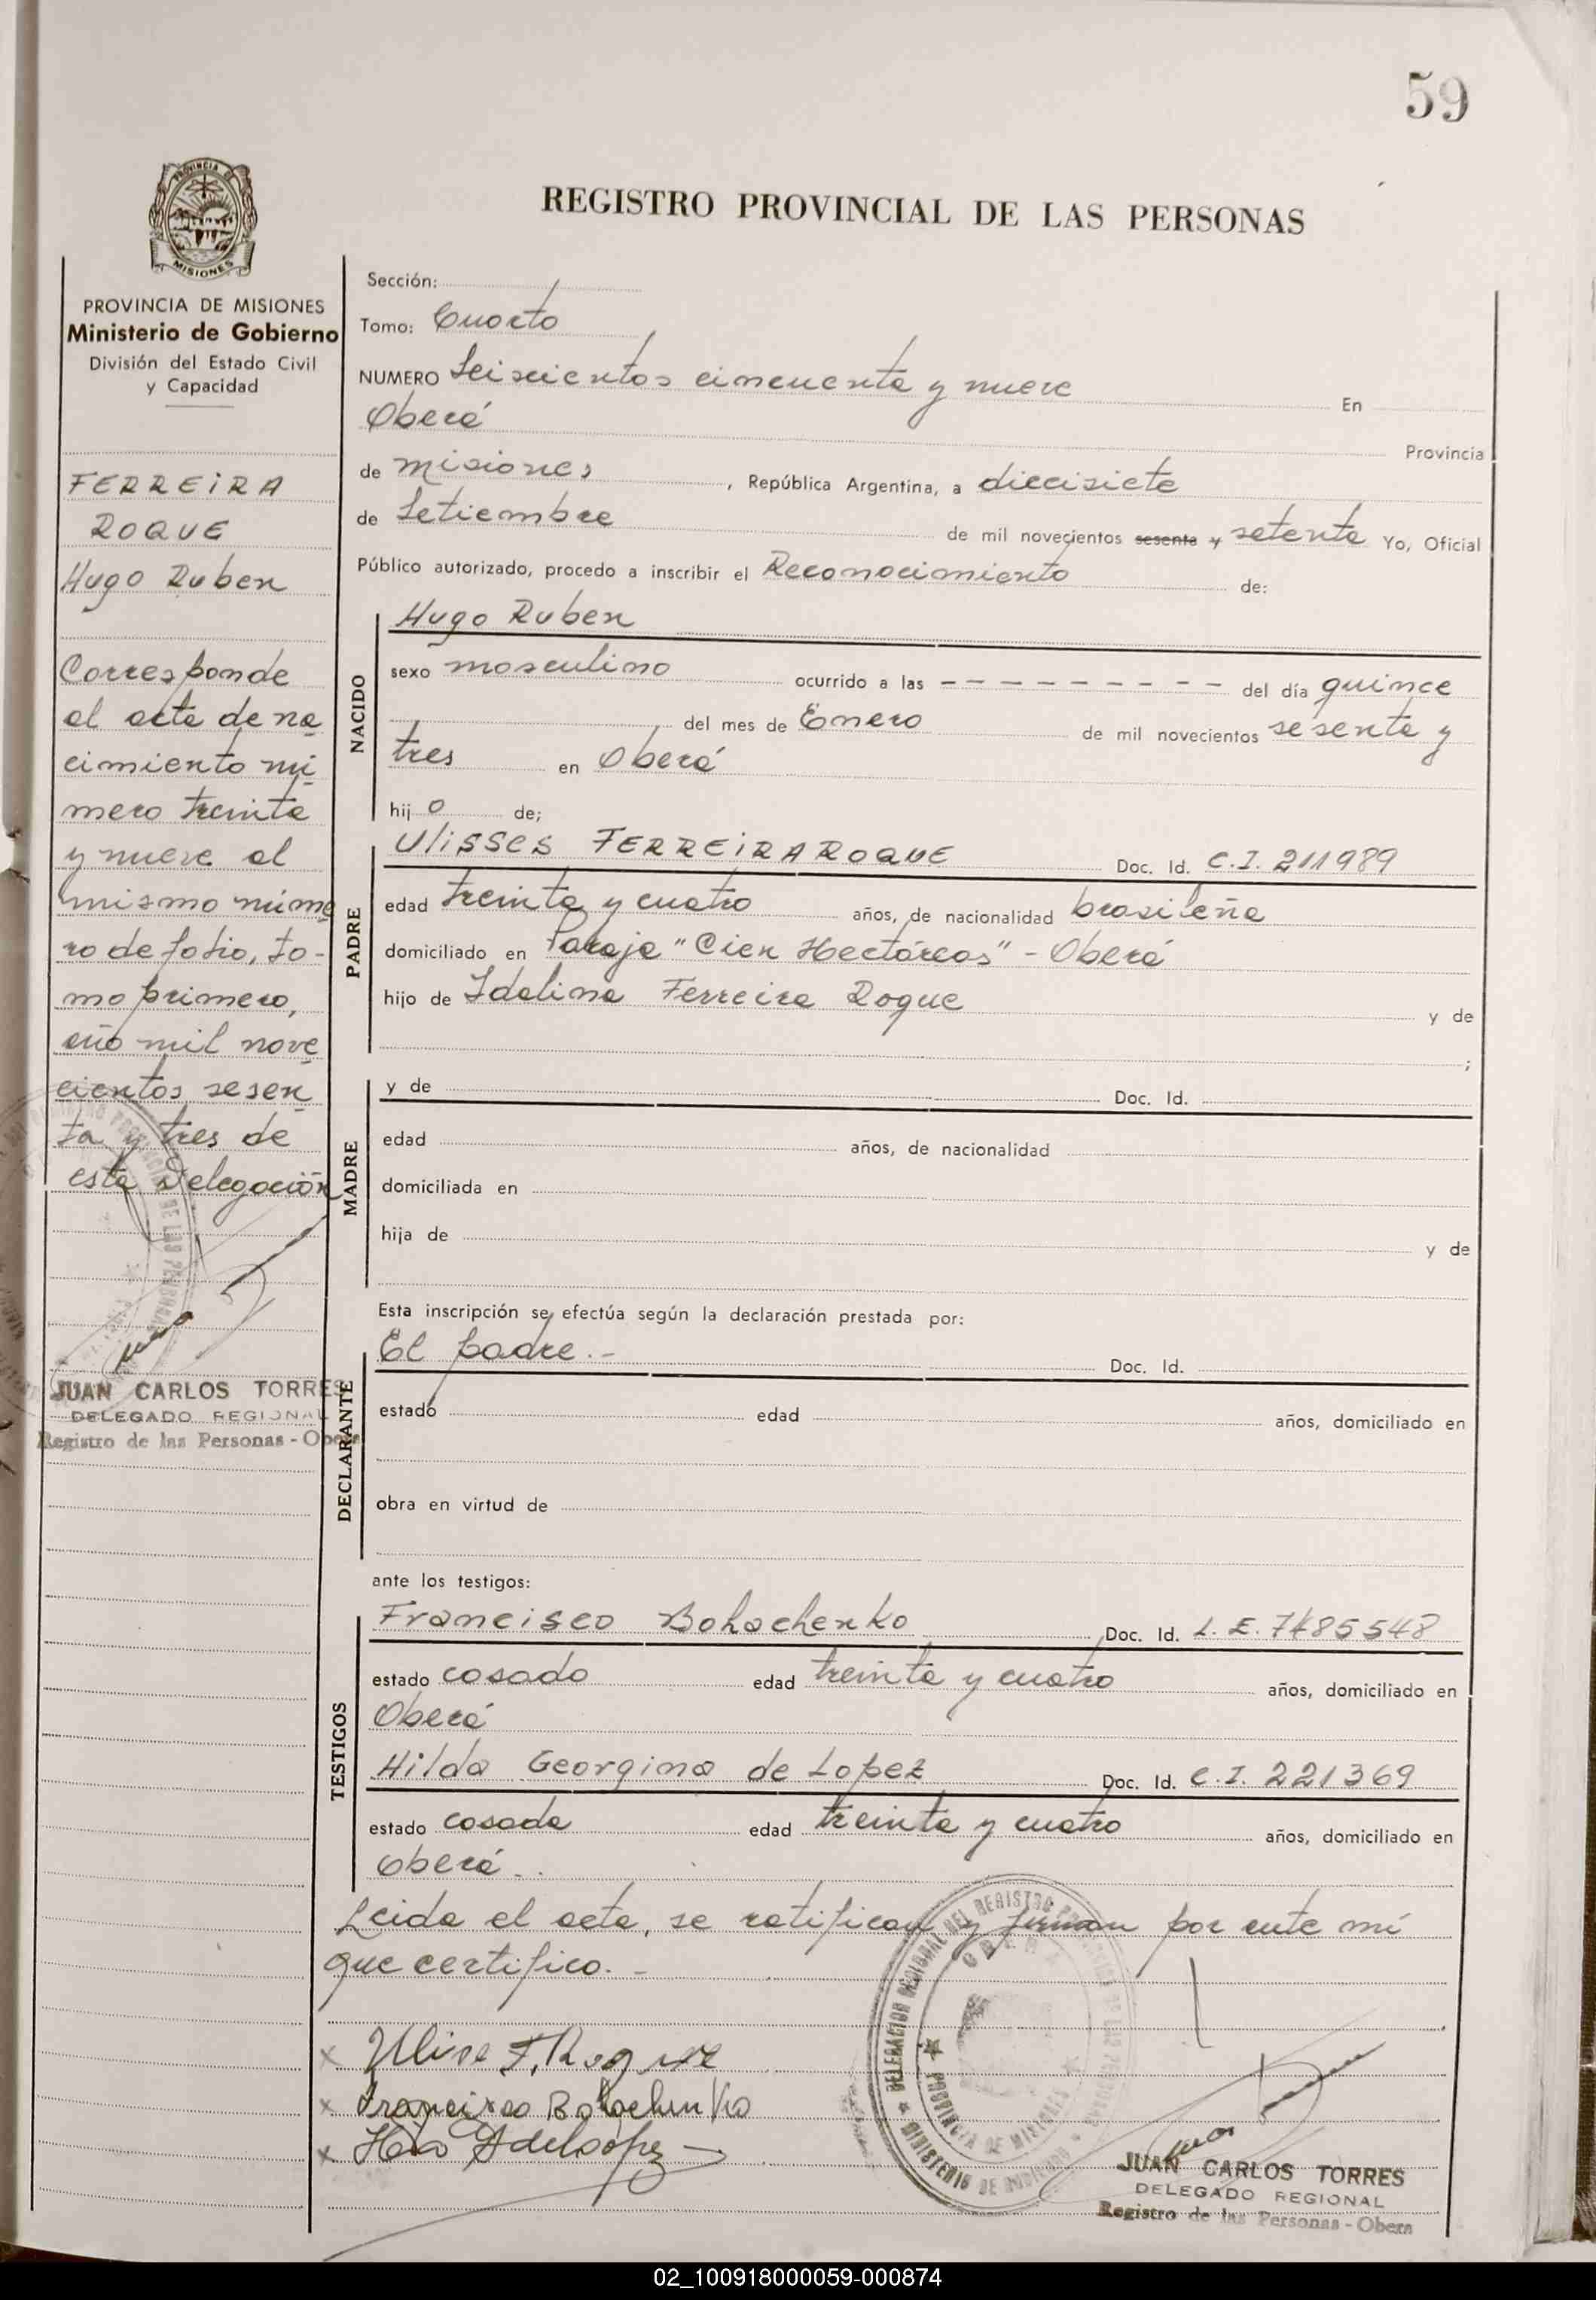 59
PROVINCIA DE
MISIONES
REGISTRO PROVINCIAL DE LAS PERSONAS
PROVINCIA DE MISIONES
Ministerio de Gobierno
División del Estado Civil
y Capacidad
FERREIRA
ROQUE
Hugo Ruben
Corresponde
al acta de na
cimiento nú
mero treinta
y nueve al
mismo núme
ro de folio, to-
mo primero,
año mil nove
cientos sesen
ta y tres de
esta Delegación
JUAN CARLOS TORRES
DELEGADO REGIONAL
Registro de las Personas - Obera
Sección:
Tomo: Cuarto
NUMERO Seiscientos cincuenta y nueve En
Oberá Provincia
de Misiones, República Argentina, a diecisiete
de Setiembre de mil novecientos sesenta y setenta Yo, Oficial
Público autorizado, procedo a inscribir el Reconocimiento de:
NACIDO
Hugo Ruben
sexo masculino ocurrido a las - - - - - - - - - del día quince
del mes de Enero de mil novecientos sesenta y
tres en Oberá
hijo de;
PADRE
Ulisses FERREIRA ROQUE Doc. Id. C.I. 211989
edad treinta y cuatro años, de nacionalidad brasileña
domiciliado en Paraje "Cien Hectáreas" - Oberá
hijo de Idalina Ferreira Roque y de
;
MADRE
y de Doc. Id.
edad años, de nacionalidad
domiciliada en
hija de y de
Esta inscripción se efectúa según la declaración prestada por:
DECLARANTE
El padre.- Doc. Id.
estado edad años, domiciliado en
obra en virtud de
ante los testigos:
TESTIGOS
Francisco Bohachenko Doc. Id. L.E. 7485548
estado casado edad treinta y cuatro años, domiciliado en
Oberá
Hilda Georgina de Lopez Doc. Id. C.I. 221369
estado casada edad treinta y cuatro años, domiciliado en
Oberá.
Leida el acta, se ratifican y firman por ante mí
que certifico.-
x Ulise F. Roque
x Francisco Bohachenko
x
DELEGACION REGIONAL DEL REGISTRO PROVINCIAL DE LAS PERSONAS
OBERA
PROVINCIA DE MISIONES
MINISTERIO DE GOBIERNO
JUAN CARLOS TORRES
DELEGADO REGIONAL
Registro de las Personas - Obera
02_100918000059-000874